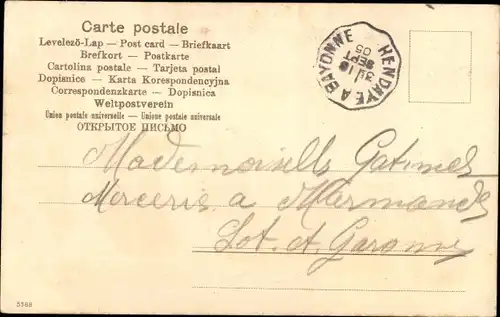 Carte postale
Levelezö-Lap — Post card — Briefkaart
Brefkort — Postkarte
Cartolina postale — Tarjeta postal
Dopisnice — Karta Korespondencyjna
Correspondenzkarte — Dopisnica
Weltpostverein
Union postale universelle — Unione postale universale
ОТКРЫТОЕ ПИСЬМО
HENDAYE A BAYONNE
SEPT
05
Mademoiselle
Mercerie a Marmande
Lot et Garonne
5588